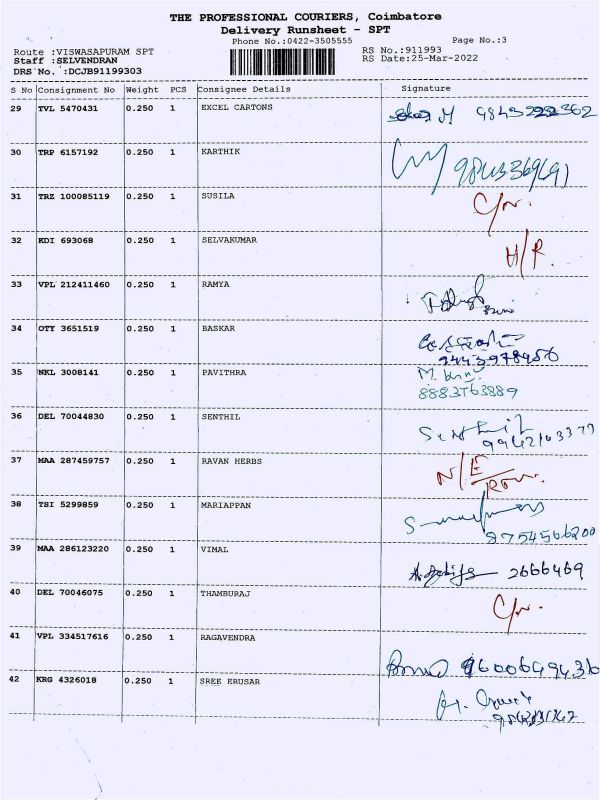 THE PROFESSIONAL COURIERS, Coimbatore
Delivery Runsheet - SPT
Phone No.:0422-3505555 Page No.:3
Route :VISWASAPURAM SPT RS No.:911993
Staff :SELVENDRAN RS Date:25-Mar-2022
DRS No. :DCJB91199303
S No Consignment No Weight PCS Consignee Details Signature
29 TVL 5470431 0.250 1 EXCEL CARTONS
30 TRP 6157192 0.250 1 KARTHIK
31 TRZ 100085119 0.250 1 SUSILA
32 KDI 693068 0.250 1 SELVAKUMAR H/R.
33 VPL 212411460 0.250 1 RAMYA
34 OTY 3651519 0.250 1 BASKAR
35 NKL 3008141 0.250 1 PAVITHRA
8883763889
36 DEL 70044830 0.250 1 SENTHIL Senthil
9942163373
37 MAA 287459757 0.250 1 RAVAN HERBS N/E
38 TSI 5299859 0.250 1 MARIAPPAN
9754566200
39 MAA 286123220 0.250 1 VIMAL 2666469
40 DEL 70046075 0.250 1 THAMBURAJ
41 VPL 334517616 0.250 1 RAGAVENDRA
9600649436
42 KRG 4326018 0.250 1 SREE ERUSAR